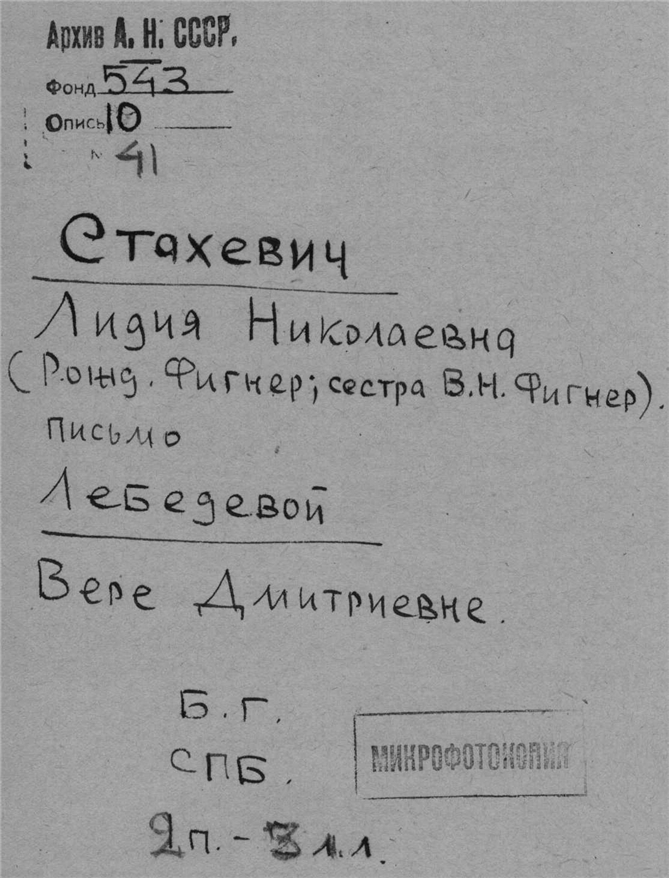 Архив А. Н. СССР.
Фонд 543
Опись 10
№ 41
Стахевич
Лидия Николаевна
(Рожд. Фигнер; сестра В.Н. Фигнер).
письмо
Лебедевой
Вере Дмитриевне.
Б.г.
СПБ.
2п. - 3 л.л.
МИКРОФОТОКОПИЯ